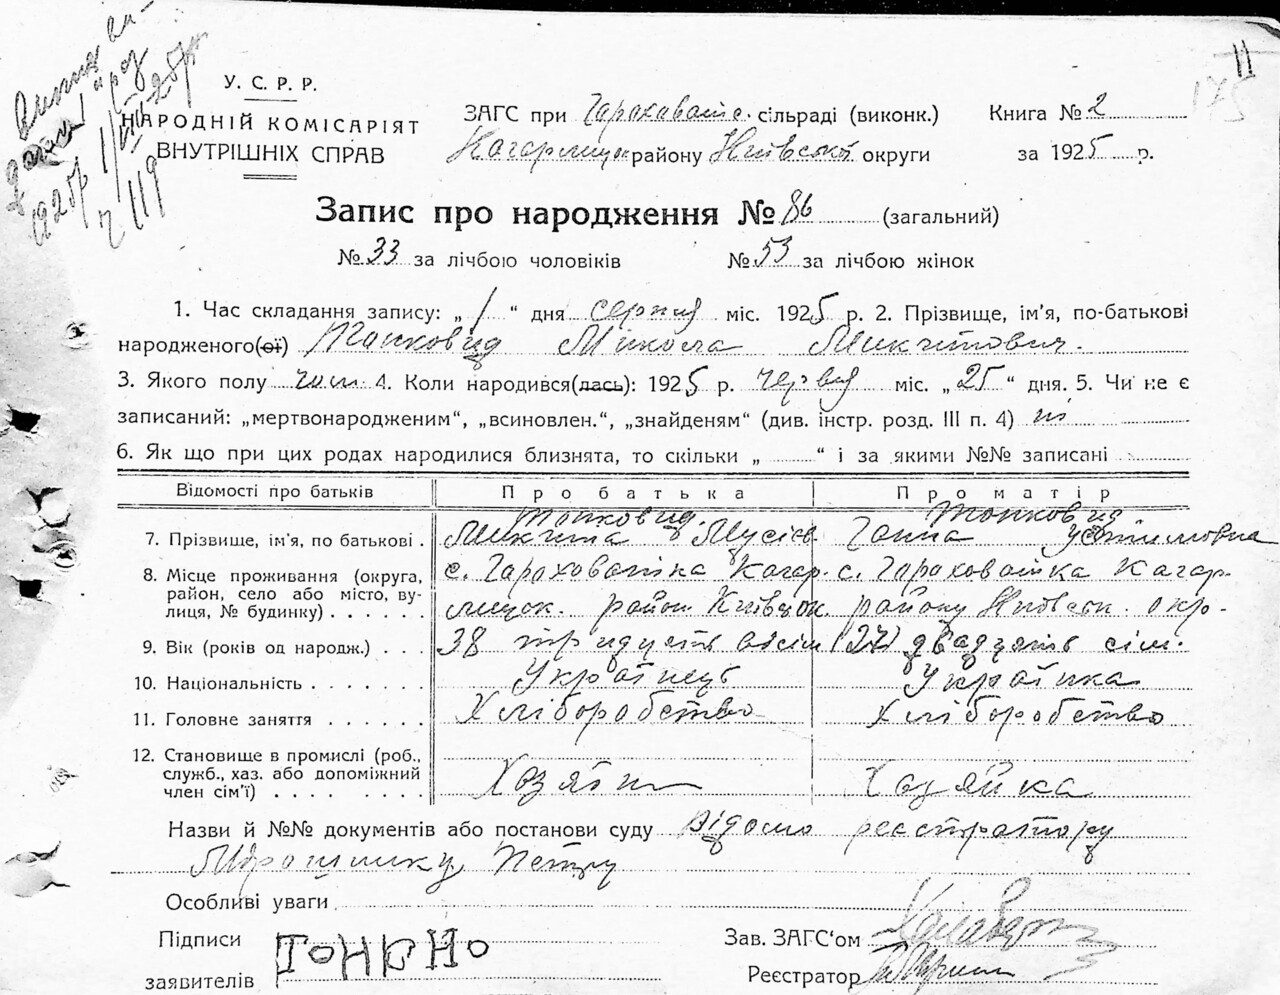 11
175
У. С. Р. Р.
НАРОДНІЙ КОМІСАРІЯТ
ВНУТРІШНІХ СПРАВ
ЗАГС при Гороховатс. сільраді (виконк.) Книга № 2
Кагарлицьк району Київської округи за 1925 р.
Запис про народження № 86 (загальний)
№ 33 за лічбою чоловіків № 53 за лічбою жінок
1. Час складання запису: „1“ дня серпня міс. 1925 р. 2. Прізвище, ім'я, по-батькові
народженого(ої) Тонковид Микола Микитович.
3. Якого полу чол. 4. Коли народився(лась): 1925 р. червня міс. „25“ дня. 5. Чи не є
записаний: „мертвонародженим“, „всиновлен.“, „знайденям“ (див. інстр. розд. III п. 4) ні
6. Як що при цих родах народилися близнята, то скільки „ “ і за якими №№ записані
Відомості про батьків Про батька Про матір
Тонковид. Тонковид
7. Прізвище, ім'я, по батькові . Микита Мусієв Ганна Устимовна
8. Місце проживання (округа, с. Гороховатка Кагар. с. Гороховатка Кагар.
район, село або місто, ву-
лиця, № будинку) . . . . . лицьк. район Київськ. району Київськ. окр.
9. Вік (років од народж.) . . . 38 тридцять вісім (27) двадцять сім.
10. Національність . . . . . . . Українець Українка
11. Головне заняття . . . . . . Хліборобство Хліборобство
12. Становище в промислі (роб.,
служб., хаз. або допоміжний
член сім'ї) . . . . . . . . Хазяїн Хазяйка
Назви й №№ документів або постанови суду Відомо реєстратору
Мірошнику Петру
Особливі уваги
Підписи
заявителів
Зав. ЗАГС‘ом
Реєстратор